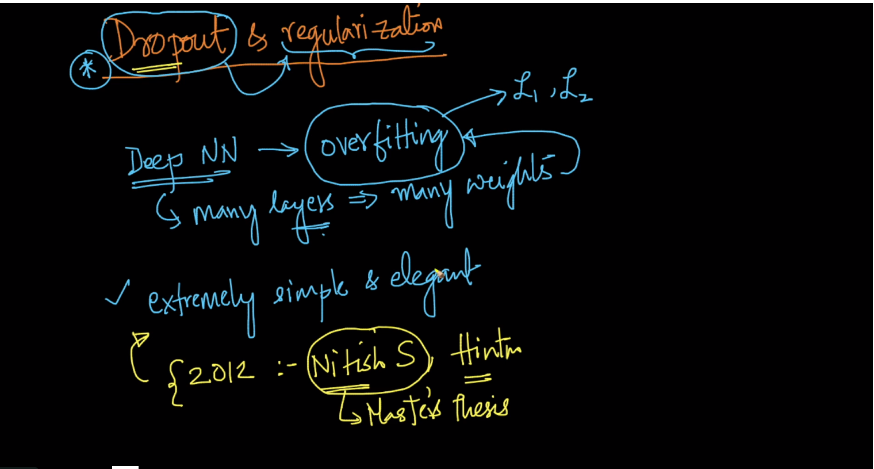 * Dropout & regularization
L1, L2
Deep NN → overfitting
↳ many layers ⇒ many weights
✓ extremely simple & elegant
{2012 :- Nitish S, Hinton
↳ Master's thesis